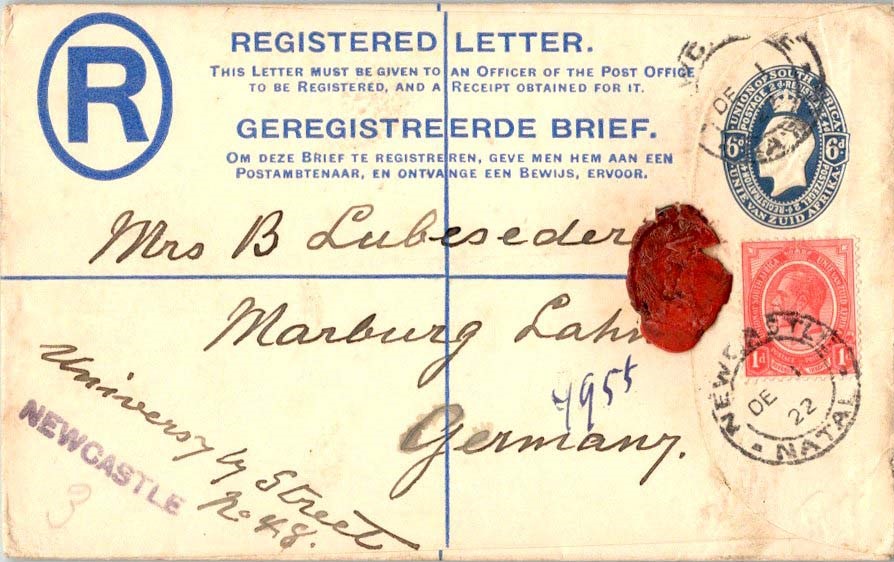 R
REGISTERED LETTER.
THIS LETTER MUST BE GIVEN TO AN OFFICER OF THE POST OFFICE
TO BE REGISTERED, AND A RECEIPT OBTAINED FOR IT.
GEREGISTREERDE BRIEF.
OM DEZE BRIEF TE REGISTREREN, GEVE MEN HEM AAN EEN
POSTAMBTENAAR, EN ONTVANGE EEN BEWIJS, ERVOOR.
UNION OF SOUTH AFRICA
6d 6d
UNIE VAN ZUID AFRIKA
DE
Mrs B Lubeseder
Marburg Lahn
Germany.
495
University Street
No 48.
NEWCASTLE
3
1d 1d
NEWCASTLE
DE
22
NATAL